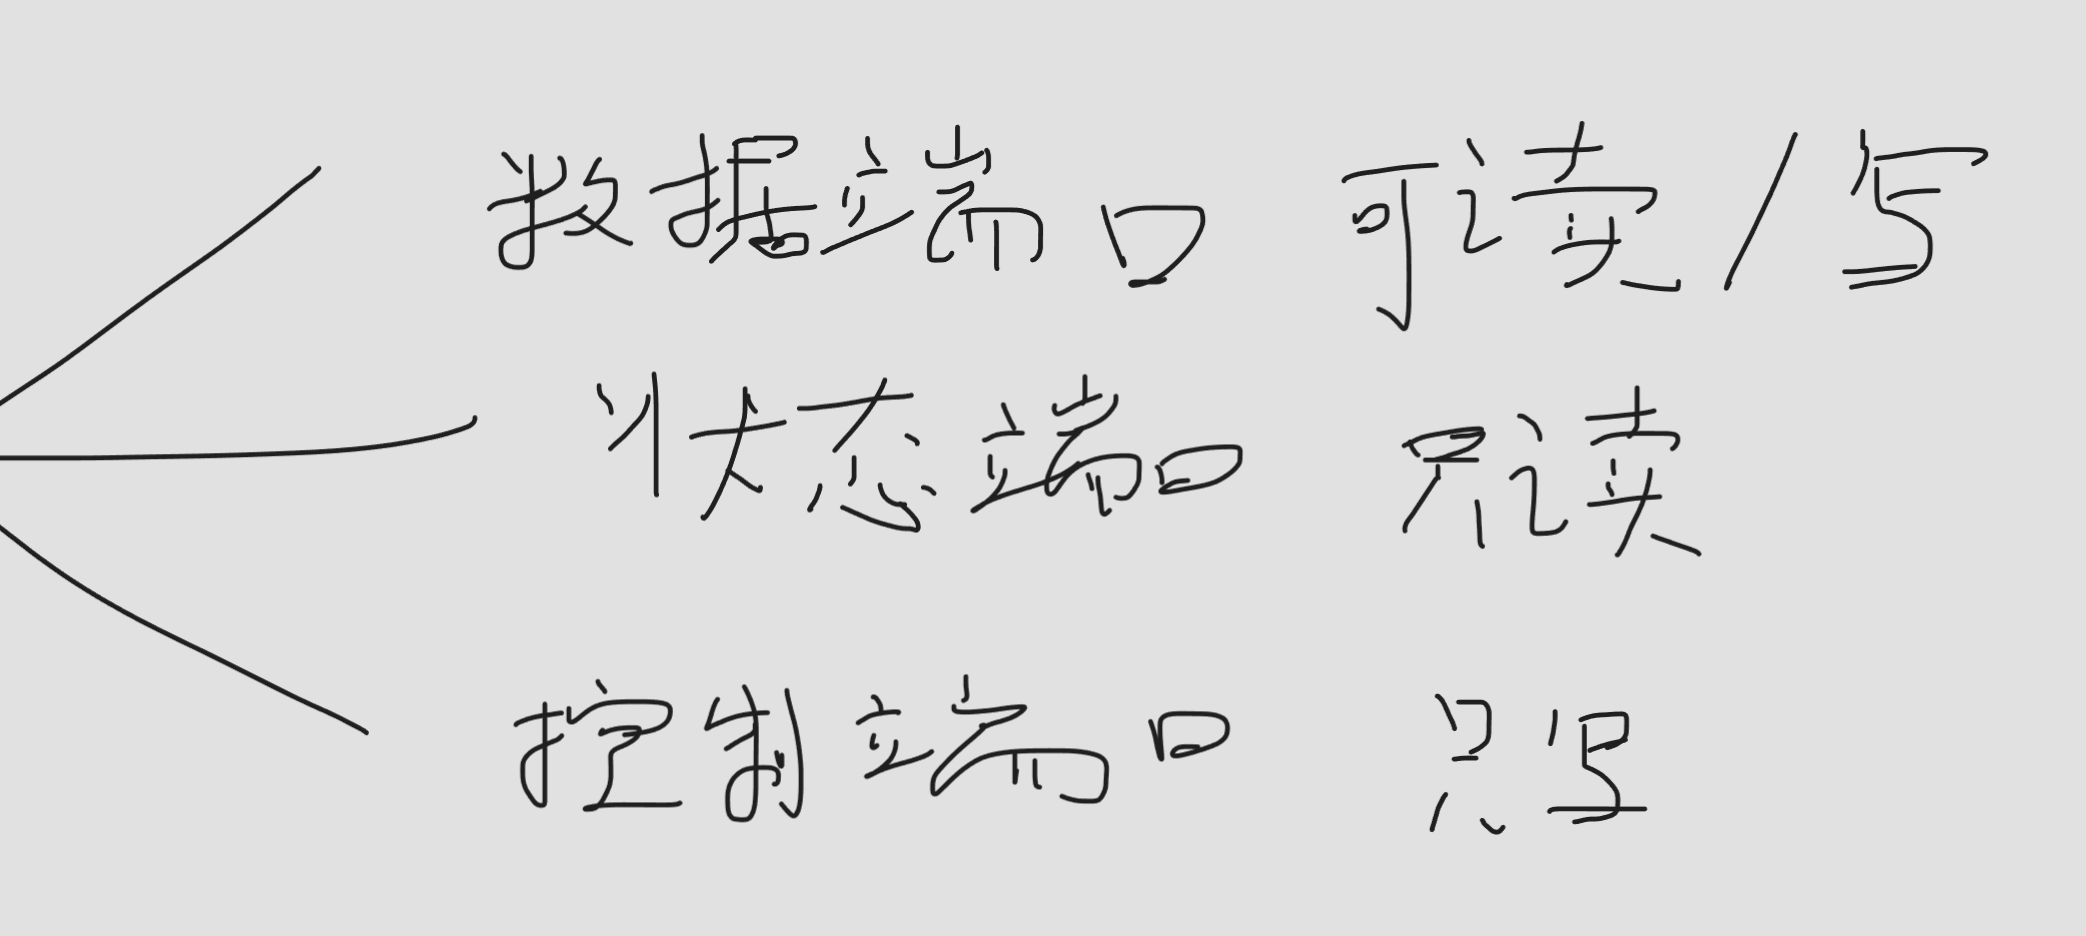 数据端口 可读/写
状态端口 只读
控制端口 只写